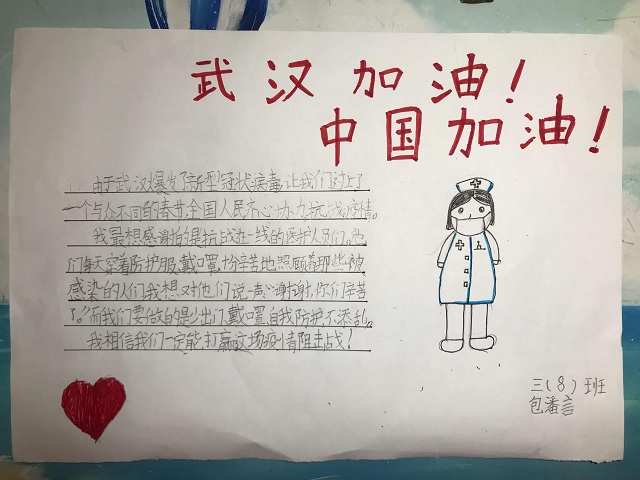 武汉加油！
中国加油！
由于武汉爆发了新型冠状病毒让我们过上了
一个与众不同的春节,全国人民齐心协力抗战疫情。
我最想感谢的是抗战在一线的医护人员们,他
们每天穿着防护服,戴口罩,扮辛苦地照顾着那些被
感染的人们,我想对他们说声心谢谢,你们辛苦
了。"而我们要做的是少出门,戴口罩,自我防护,不添乱。
我相信我们一定能打赢这场疫情阻击战！
三(8)班
包潘言